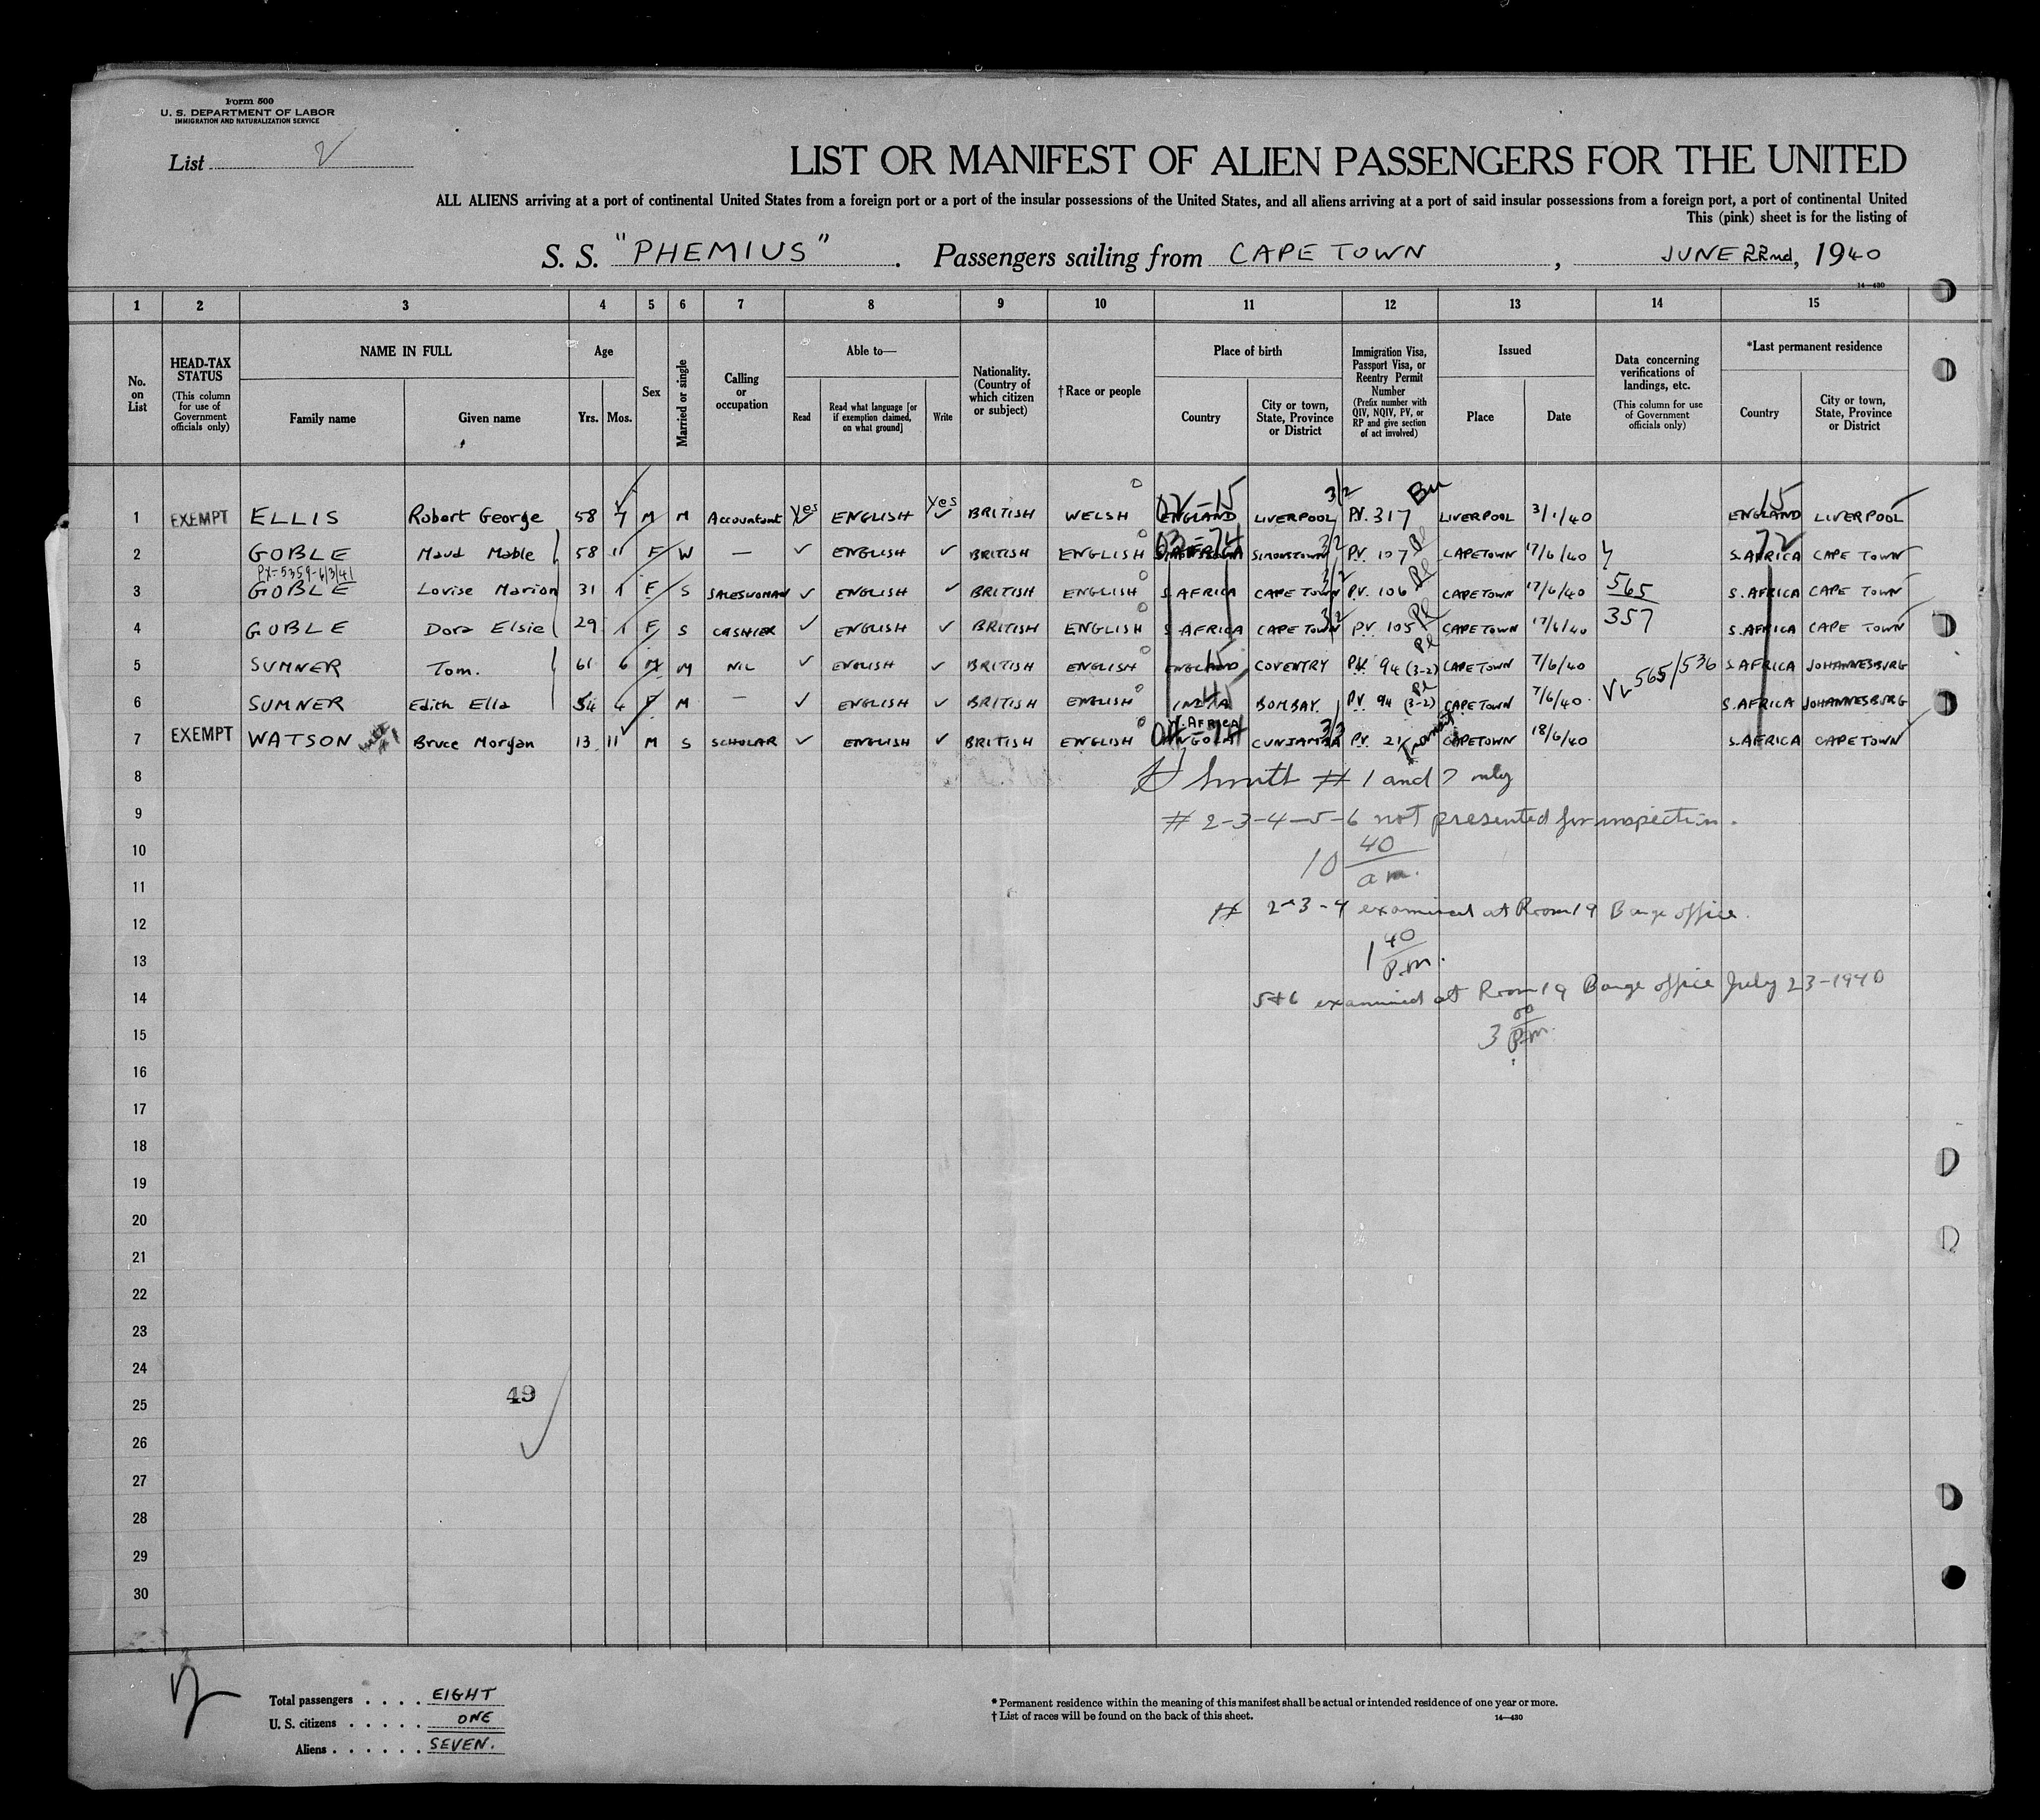 Form 500
U. S. DEPARTMENT OF LABOR
IMMIGRATION AND NATURALIZATION SERVICE
List 2
LIST OR MANIFEST OF ALIEN PASSENGERS FOR THE UNITED
ALL ALIENS arriving at a port of continental United States from a foreign port or a port of the insular possessions of the United States, and all aliens arriving at a port of said insular possessions from a foreign port, a port of continental United
This (pink) sheet is for the listing of
S. S. "PHEMIUS". Passengers sailing from CAPE TOWN, JUNE 22nd, 1940
14—430
1 2 3 4 5 6 7 8 9 10 11 12 13 14 15
No. on List
HEAD-TAX STATUS
(This column for use of Government officials only)
NAME IN FULL
Family name
Given name
Age
Yrs. Mos.
Sex
Married or single
Calling or occupation
Able to—
Read
Read what language [or if exemption claimed, on what ground]
Write
Nationality. (Country of which citizen or subject)
†Race or people
Place of birth
Country
City or town, State, Province or District
Immigration Visa, Passport Visa, or Reentry Permit Number
(Prefix number with QIV, NQIV, PV, or RP and give section of act involved)
Issued
Place
Date
Data concerning verifications of landings, etc.
(This column for use of Government officials only)
*Last permanent residence
Country
City or town, State, Province or District
02-15 3/2 15
1 EXEMPT ELLIS Robert George 58 7 M M Accountant Yes ENGLISH Yes BRITISH WELSH ENGLAND LIVERPOOL P.V. 317 LIVERPOOL 3/1/40 ENGLAND LIVERPOOL
03-74 3/2 72
2 GOBLE Maud Mable 58 11 F W — ✓ ENGLISH ✓ BRITISH ENGLISH S. AFRICA SIMONSTOWN P.V. 107 CAPETOWN 17/6/40 S. AFRICA CAPE TOWN
PX-5359-6/3/41
3 GOBLE Lovise Marion 31 1 F S SALESWOMAN ✓ ENGLISH ✓ BRITISH ENGLISH S AFRICA CAPE TOWN 3/2 P.V. 106 CAPETOWN 17/6/40 565 S. AFRICA CAPE TOWN
4 GOBLE Dora Elsie 29 1 F S CASHIER ✓ ENGLISH ✓ BRITISH ENGLISH S AFRICA CAPE TOWN 3/2 P.V. 105 CAPETOWN 17/6/40 357 S. AFRICA CAPE TOWN
5 SUMNER Tom. 61 6 M M NIL ✓ ENGLISH ✓ BRITISH ENGLISH ENGLAND 15 COVENTRY P.V. 94 (3-2) CAPETOWN 7/6/40 565/536 S AFRICA JOHANNESBURG
6 SUMNER Edith Ella 54 4 F M — ✓ ENGLISH ✓ BRITISH ENGLISH INDIA 45 BOMBAY. P.V. 94 (3-2) CAPETOWN 7/6/40 S. AFRICA JOHANNESBURG
7 EXEMPT WATSON Bruce Morgan 13 11 M S SCHOLAR ✓ ENGLISH ✓ BRITISH ENGLISH W. AFRICA ANGOLA 3/3 P.V. 21 Transit CAPETOWN 18/6/40 S. AFRICA CAPETOWN
8 Smith # 1 and 7 only
9 # 2-3-4-5-6 not presented for inspection.
10 10 40/am.
11
12 # 2-3-4 examined at Room 19 Barge office.
13 1 40/P.m.
14 5+6 examined at Room 19 Barge office July 23-1940
15 3 00/P.m.
16
17
18
19
20
21
22
23
24
25 49
26
27
28
29
30
Total passengers . . . . EIGHT
U. S. citizens . . . . . ONE
Aliens . . . . . . SEVEN.
* Permanent residence within the meaning of this manifest shall be actual or intended residence of one year or more.
† List of races will be found on the back of this sheet.
14—430